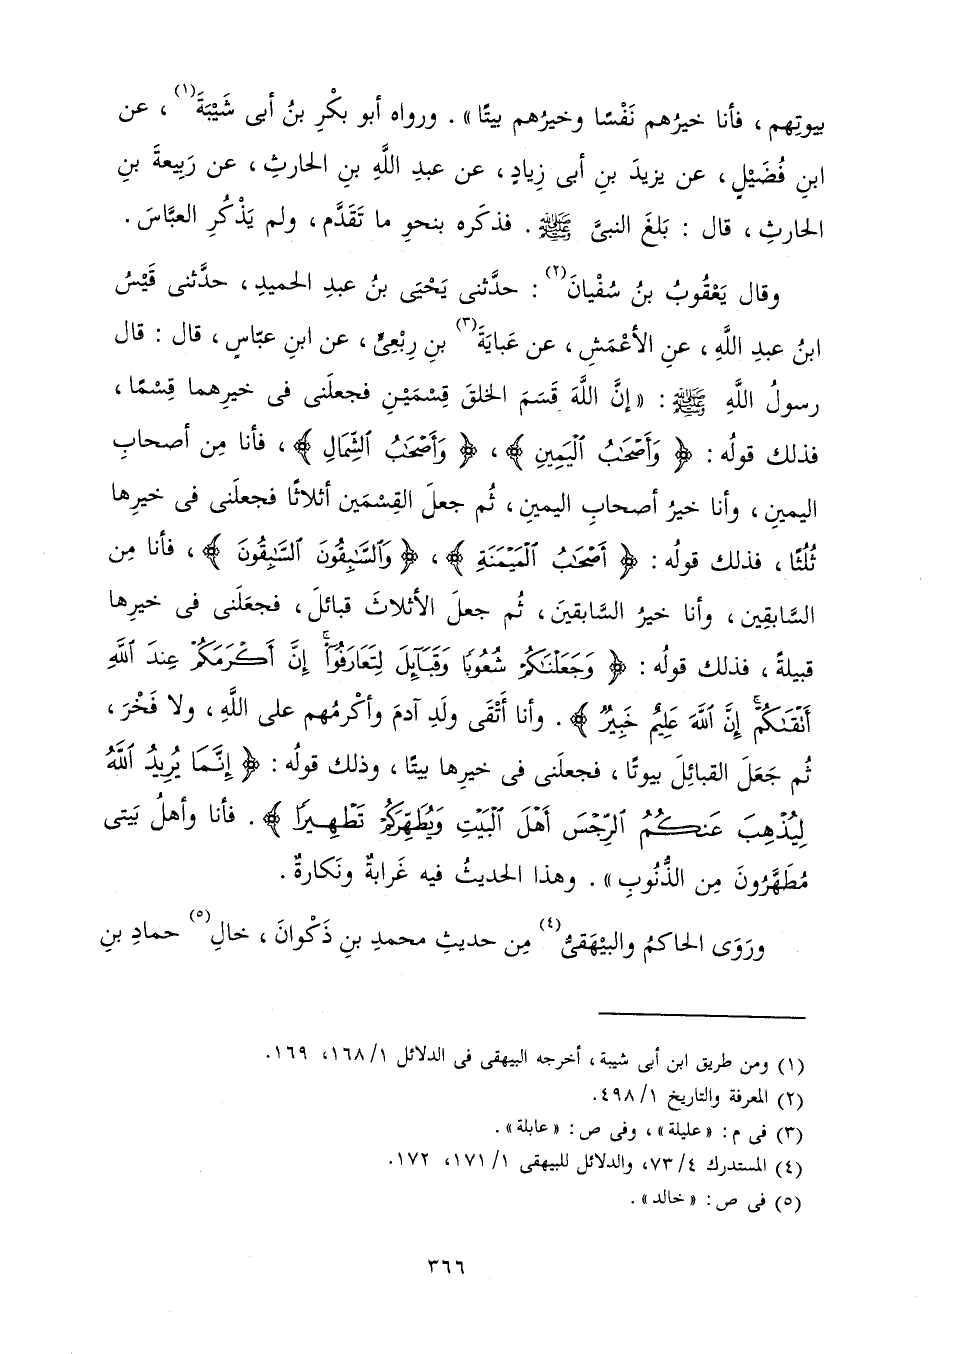 بيوتِهم ، فأنا خيرُهم نَفْسًا وخيرُهم بيتًا » . ورواه أبو بكْرِ بنُ أبى شَيْبَةَ(١) ، عن
ابنِ فُضَيْلٍ ، عن يزيدَ بنِ أبى زِيادٍ ، عن عبدِ اللَّهِ بنِ الحارثِ ، عن رَبِيعةَ بنِ
الحارثِ ، قال : بَلغَ النبىَّ ﷺ . فذكَره بنحوِ ما تَقَدَّم ، ولم يَذْكُرِ العبَّاسَ .
وقال يَعْقُوبُ بنُ سُفْيانَ(٢) : حدَّثنى يَحْيَى بنُ عبدِ الحميدِ ، حدَّثنى قَيْسُ
ابنُ عبدِ اللَّهِ ، عنِ الأعْمَشِ ، عن عَبايَةَ(٣) بنِ رِبْعِىٍّ ، عن ابنِ عبَّاسٍ ، قال : قال
رسولُ اللَّهِ ﷺ : « إنَّ اللَّهَ قَسَمَ الخلقَ قِسْمَيْنِ فجعلَنى فى خيرِهما قِسْمًا ،
فذلك قولُه : ﴿ وَأَصْحَٰبُ ٱلْيَمِينِ ﴾ ، ﴿ وَأَصْحَٰبُ ٱلشِّمَالِ ﴾ ، فأنا مِن أصحابِ
اليمينِ ، وأنا خيرُ أصحابِ اليمينِ ، ثُم جعلَ القِسْمَين أثلاثًا فجعلَنى فى خيرِها
ثُلُثًا ، فذلك قولُه : ﴿ أَصْحَٰبُ ٱلْمَيْمَنَةِ ﴾ ، ﴿ وَٱلسَّٰبِقُونَ ٱلسَّٰبِقُونَ ﴾ ، فأنا مِن
السَّابقِين ، وأنا خيرُ السَّابقينَ ، ثُم جعلَ الأثلاثَ قبائلَ ، فجعَلَنى فى خيرِها
قبيلةً ، فذلك قولُه : ﴿ وَجَعَلْنَٰكُمْ شُعُوبًا وَقَبَآئِلَ لِتَعَارَفُوٓا۟ ۚ إِنَّ أَكْرَمَكُمْ عِندَ ٱللَّهِ
أَتْقَىٰكُمْ ۚ إِنَّ ٱللَّهَ عَلِيمٌ خَبِيرٌ ﴾ . وأنا أتْقَى ولَدِ آدمَ وأكْرمُهم على اللَّهِ ، ولا فَخْرَ ،
ثُم جَعَلَ القبائلَ بيوتًا ، فجعلَنى فى خيرِها بيتًا ، وذلك قولُه : ﴿ إِنَّمَا يُرِيدُ ٱللَّهُ
لِيُذْهِبَ عَنكُمُ ٱلرِّجْسَ أَهْلَ ٱلْبَيْتِ وَيُطَهِّرَكُمْ تَطْهِيرًا ﴾ . فأنا وأهلُ بَيتى
مُطَهَّرُونَ مِن الذُّنوبِ » . وهذا الحديثُ فيه غَرابةٌ ونَكارةٌ .
ورَوَى الحاكمُ والبيْهَقىُّ(٤) مِن حديثِ محمدِ بنِ ذَكْوانَ ، خالِ(٥) حمادِ بنِ
(١) ومن طريق ابن أبى شيبة ، أخرجه البيهقى فى الدلائل ١/ ١٦٨، ١٦٩.
(٢) المعرفة والتاريخ ١/ ٤٩٨.
(٣) فى م : « عليلة » ، وفى ص : « عابلة » .
(٤) المستدرك ٤/ ٧٣، والدلائل للبيهقى ١/ ١٧١، ١٧٢.
(٥) فى ص : « خالد » .
٣٦٦